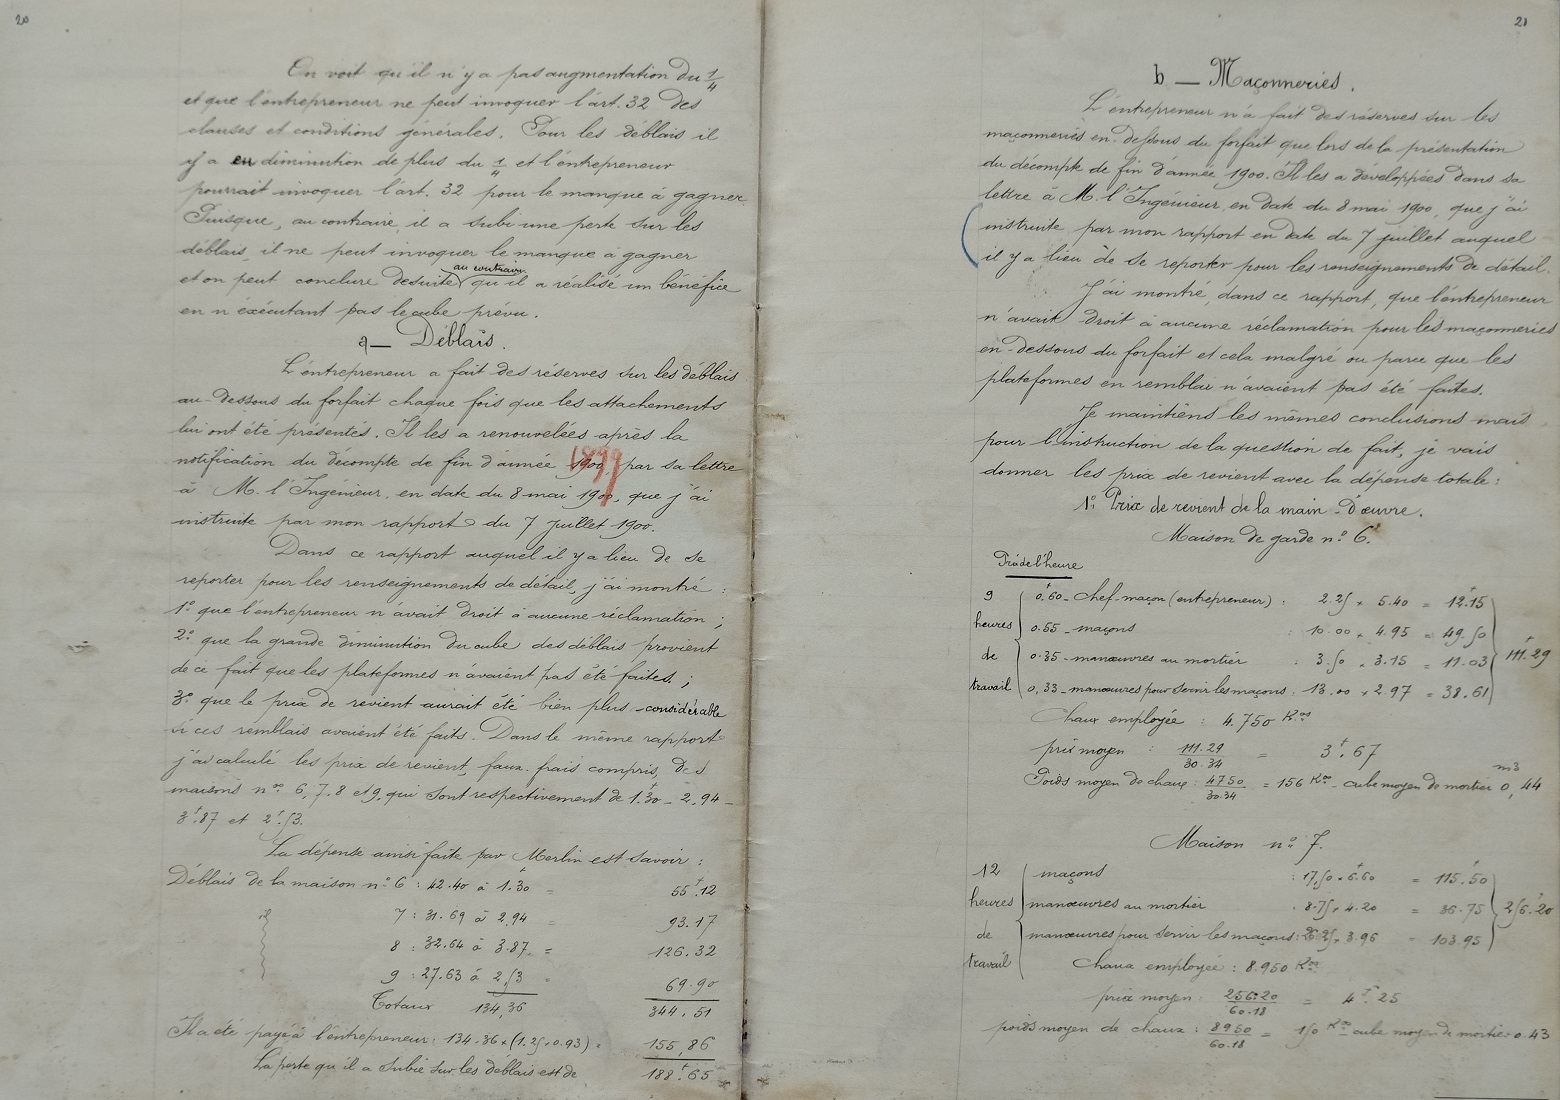 20
On voit qu'il n'y a pas augmentation du 1/4
et que l'entrepreneur ne peut invoquer l'art. 32 des
clauses et conditions générales. Pour les déblais il
y a en diminution de plus du 1/4 et l'entrepreneur
pourrait invoquer l'art. 32 pour le manque à gagner.
Puisque, au contraire, il a subi une perte sur les
déblais, il ne peut invoquer le manque à gagner
au contraire
et on peut conclure desuite qu'il a réalisé un bénéfice
en n'éxécutant pas le cube prévu.
a — Déblais.
L'entrepreneur a fait des réserves sur les déblais
au-dessous du forfait chaque fois que les attachements
lui ont été présentés. Il les a renouvelées après la
notification du décompte de fin d'année 1900 1899 par sa lettre
à M. l'Ingénieur, en date du 8 mai 1900, que j'ai
instruite par mon rapport du 7 juillet 1900.
Dans ce rapport auquel il y a lieu de se
reporter pour les renseignements de détail, j'ai montré :
1º que l'entrepreneur n'avait droit à aucune réclamation ;
2º que la grande diminution du cube des déblais provient
de ce fait que les plateformes n'avaient pas été faites ;
3º que le prix de revient aurait été bien plus considérable
si ces remblais avaient été faits. Dans le même rapport
j'ai calculé les prix de revient, faux-frais compris, des
maisons nos 6, 7, 8 et 9, qui sont respectivement de 1f.30 - 2,94 -
3f.87 et 2f.53.
La dépense ainsi faite par Merlin est savoir :
Déblais de la maison nº 6 : 42.40 à 1f.30 = 55f.12
id 7 : 31.69 à 2.94 = 93.17
8 : 32.64 à 3.87 = 126.32
9 : 27.63 à 2.53 = 69.90
Totaux 134,36 344.51
Il a été payé à l'entrepreneur : 134.36 × (1.25 - 0.93) = 155,86
La perte qu'il a subie sur les déblais est de 188f.65
21
b — Maçonneries.
L'entrepreneur n'a fait des réserves sur les
maçonneries en-dessous du forfait que lors de la présentation
du décompte de fin d'année 1900. Il les a développées dans sa
lettre à M. l'Ingénieur, en date du 8 mai 1900, que j'ai
instruite par mon rapport en date du 7 juillet auquel
il y a lieu de se reporter pour les renseignements de détail.
J'ai montré, dans ce rapport, que l'entrepreneur
n'avait droit à aucune réclamation pour les maçonneries
en-dessous du forfait et cela malgré ou parce que les
plateformes en remblai n'avaient pas été faites.
Je maintiens les mêmes conclusions mais
pour l'instruction de la question de fait, je vais
donner les prix de revient avec la dépense totale :
1º Prix de revient de la main-d'œuvre.
Maison de garde nº 6.
Prix de l'heure
9 heures de travail
0f.60 - Chef-maçon (entrepreneur) : 2.25 × 5.40 = 12f.15
0.55 - maçons : 10.00 × 4.95 = 49.50
0.35 - manœuvres au mortier : 3.50 × 3.15 = 11.03
0,33 - manœuvres pour servir les maçons : 13.00 × 2.97 = 38.61
111f.29
Chaux employée : 4.750 Kos
prix moyen : 111.29/30.34 = 3f.67
Poids moyen de chaux : 4750/30.34 = 156 Kos - cube moyen de mortier 0m3,44
Maison nº 7.
12 heures de travail
maçons : 17,50 × 6f.60 = 115f.50
manœuvres au mortier : 8.75 × 4.20 = 36.75
manœuvres pour servir les maçons : 26.25 × 3.96 = 103.95
256f.20
Chaux employée : 8.950 Kos
prix moyen : 256.20/60.18 = 4f.25
poids moyen de chaux : 8950/60.18 = 150 Kos - cube moyen de mortier 0.43